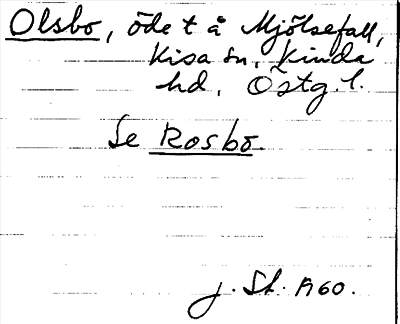 Olsbo, öde t å Mjölsefall,
Kisa sn, Kinda
hd, Östg. l.
Se Rosbo.
J. St. A60.